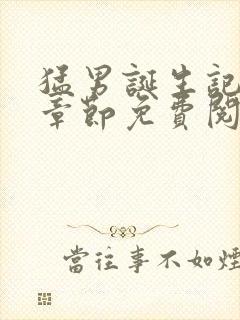 猛男誕生記
章節免費閱
當往事不如煙